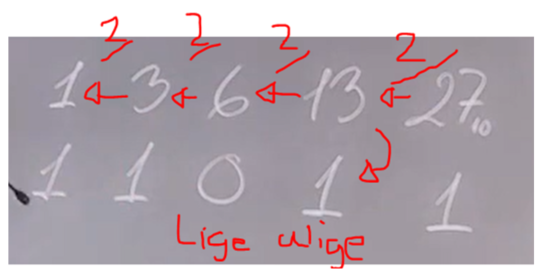 2 2 2 2
1 3 6 13 27₁₀
1 1 0 1 1
Lige ulige